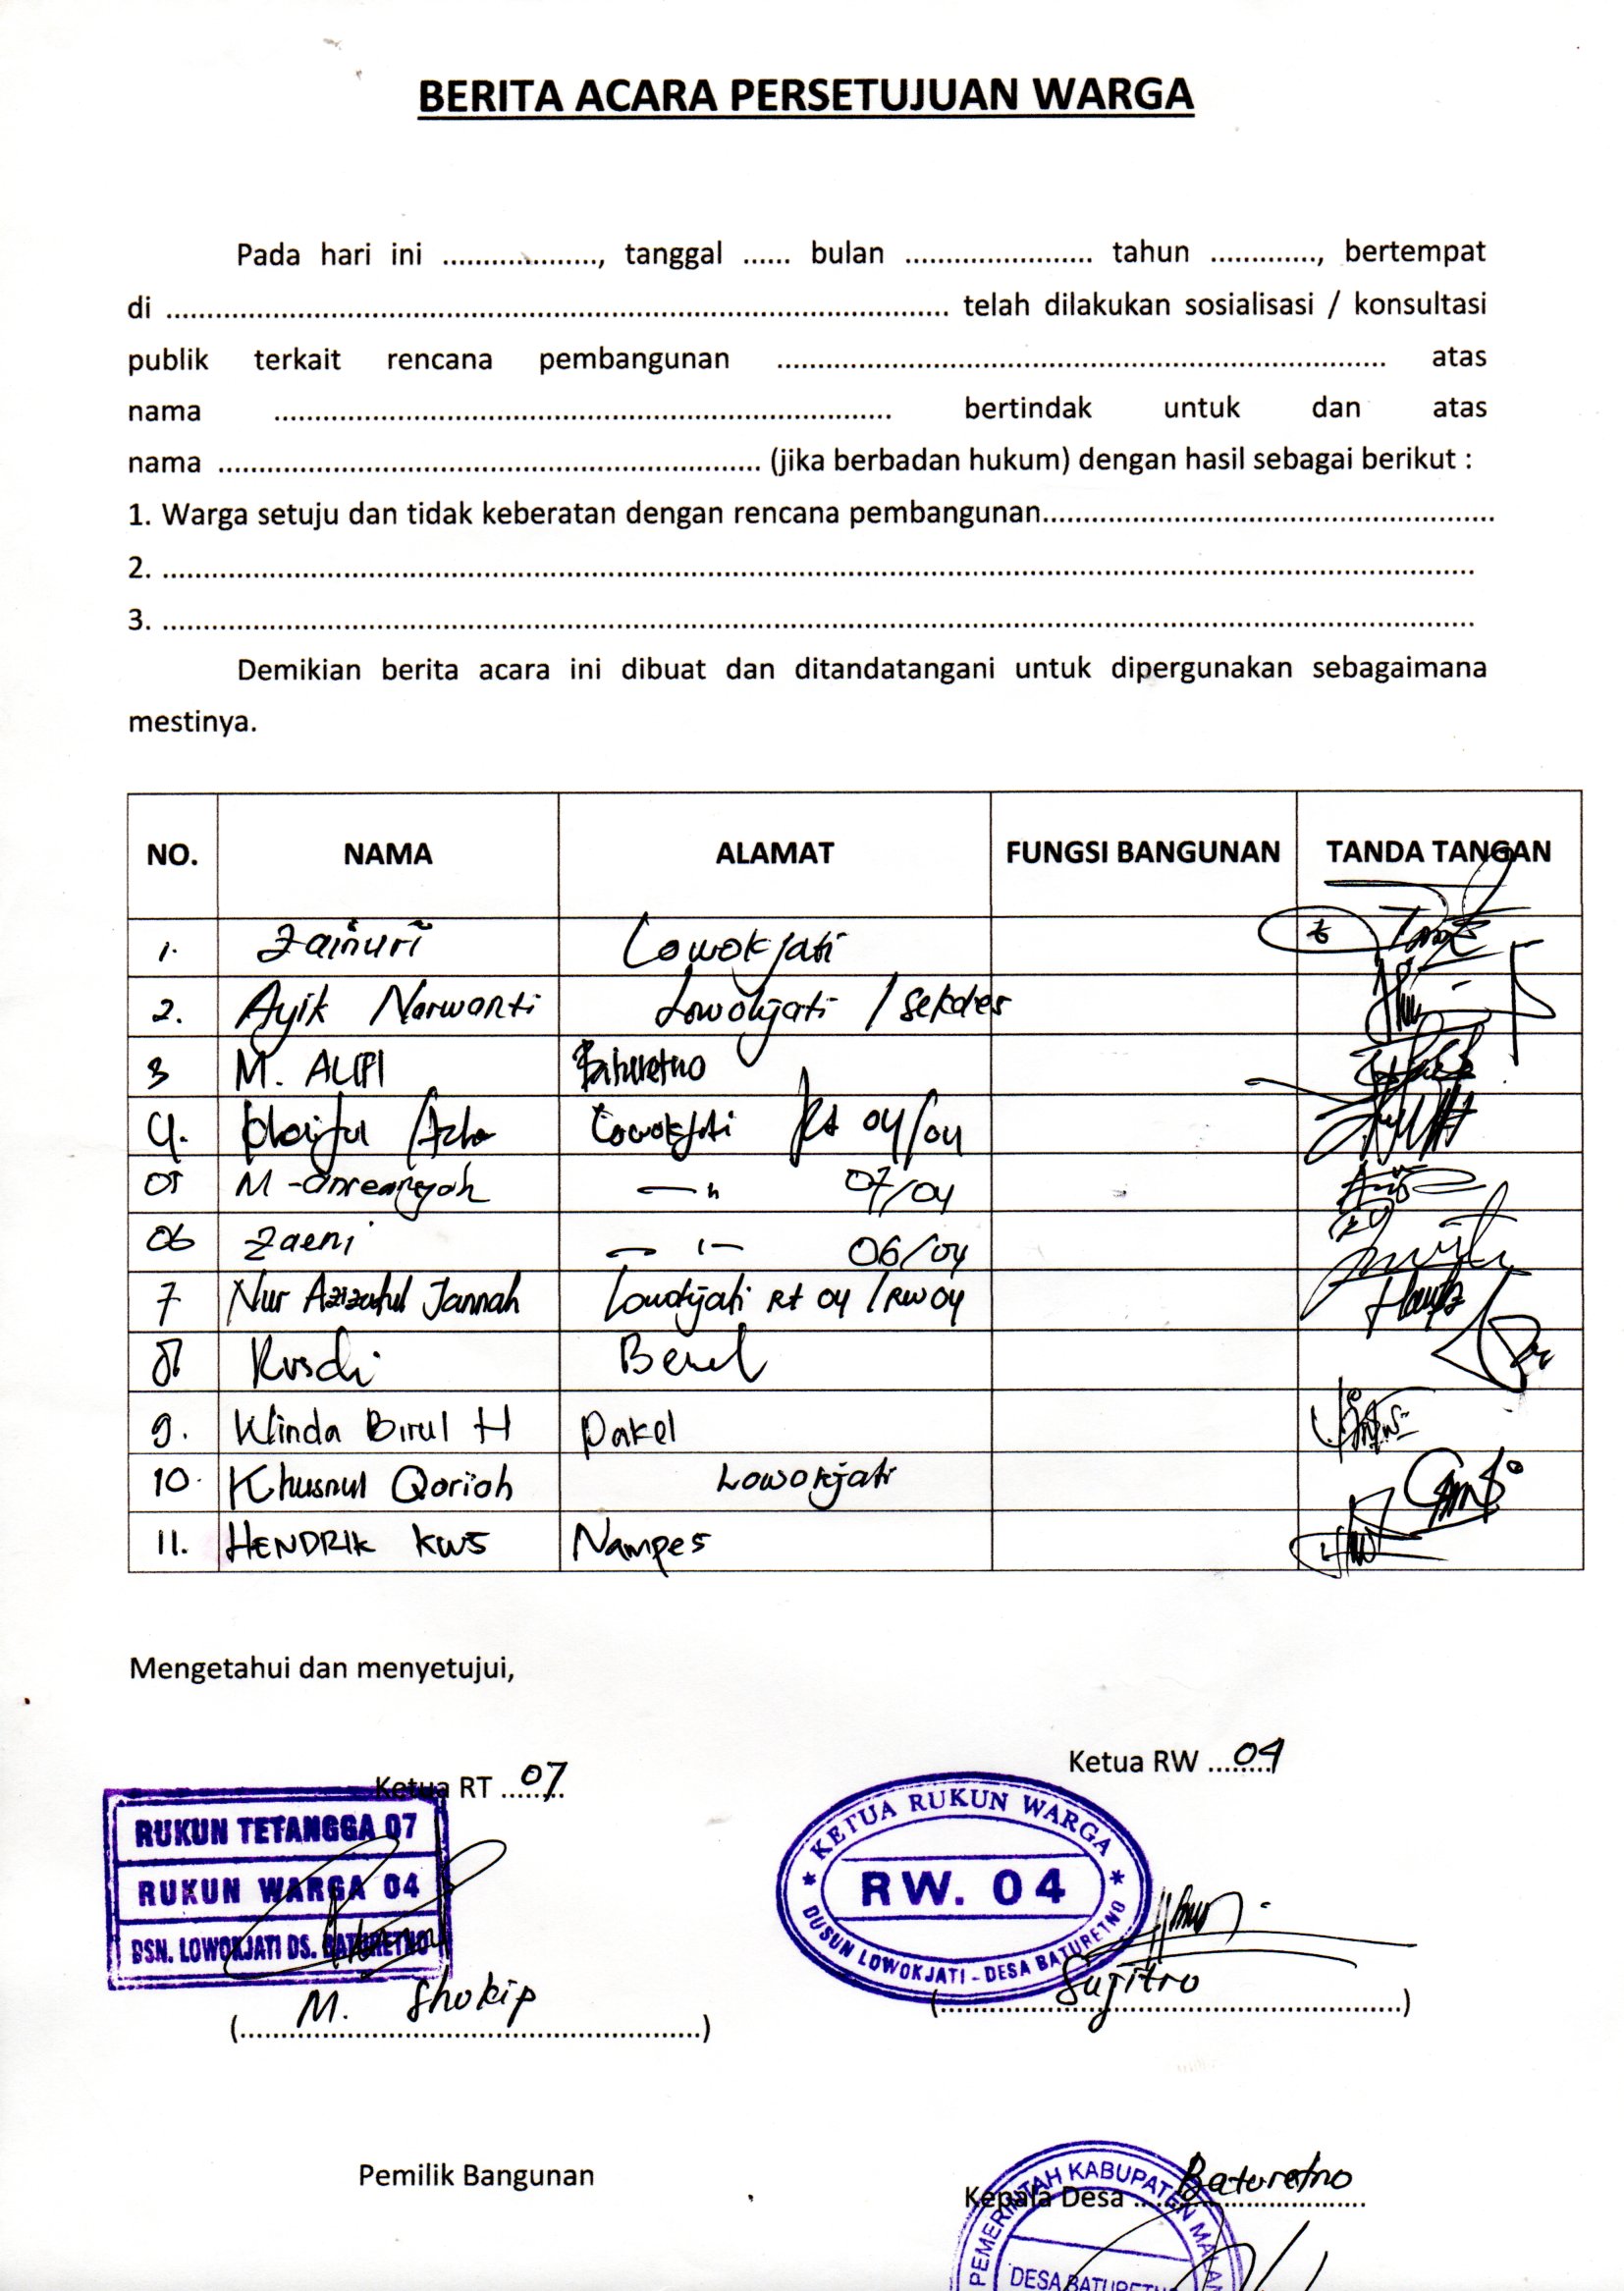 BERITA ACARA PERSETUJUAN WARGA
Pada hari ini ..................., tanggal ...... bulan ....................... tahun ............., bertempat
di ................................................................................................ telah dilakukan sosialisasi / konsultasi
publik terkait rencana pembangunan ........................................................................... atas
nama ............................................................................ bertindak untuk dan atas
nama ................................................................... (jika berbadan hukum) dengan hasil sebagai berikut :
1. Warga setuju dan tidak keberatan dengan rencana pembangunan........................................................
2. .................................................................................................................................................................
3. .................................................................................................................................................................
Demikian berita acara ini dibuat dan ditandatangani untuk dipergunakan sebagaimana
mestinya.
NO. NAMA ALAMAT FUNGSI BANGUNAN TANDA TANGAN
1. Zainuri Lowokjati
2. Ayik Norwanti Lowokjati / Sekdes
3 M. Baturetno
4. Lowokjati Rt 04/04
05 M 07/04
06 Zaeni 06/04
7 Nur Azizatul Jannah Lowokjati Rt 04 / RW 04
8 Rusdi
9. Winda Birul H Pakel
10. Khusnul Qorioh Lowokjati
11. HENDRIK KWS Nampes
Mengetahui dan menyetujui,
Ketua RT ........ 07
Ketua RW ........ 04
RUKUN TETANGGA 07
RUKUN WARGA 04
DSN. LOWOKJATI DS. BATURETNO
KETUA RUKUN WARGA
RW. 04
DUSUN LOWOKJATI - DESA BATURETNO
M. Shokip
Sugitro
(.........................................................)
(.........................................................)
Pemilik Bangunan
Kepala Desa ............................ Baturetno
PEMERINTAH KABUPATEN MALAN
DESA BATURETNO